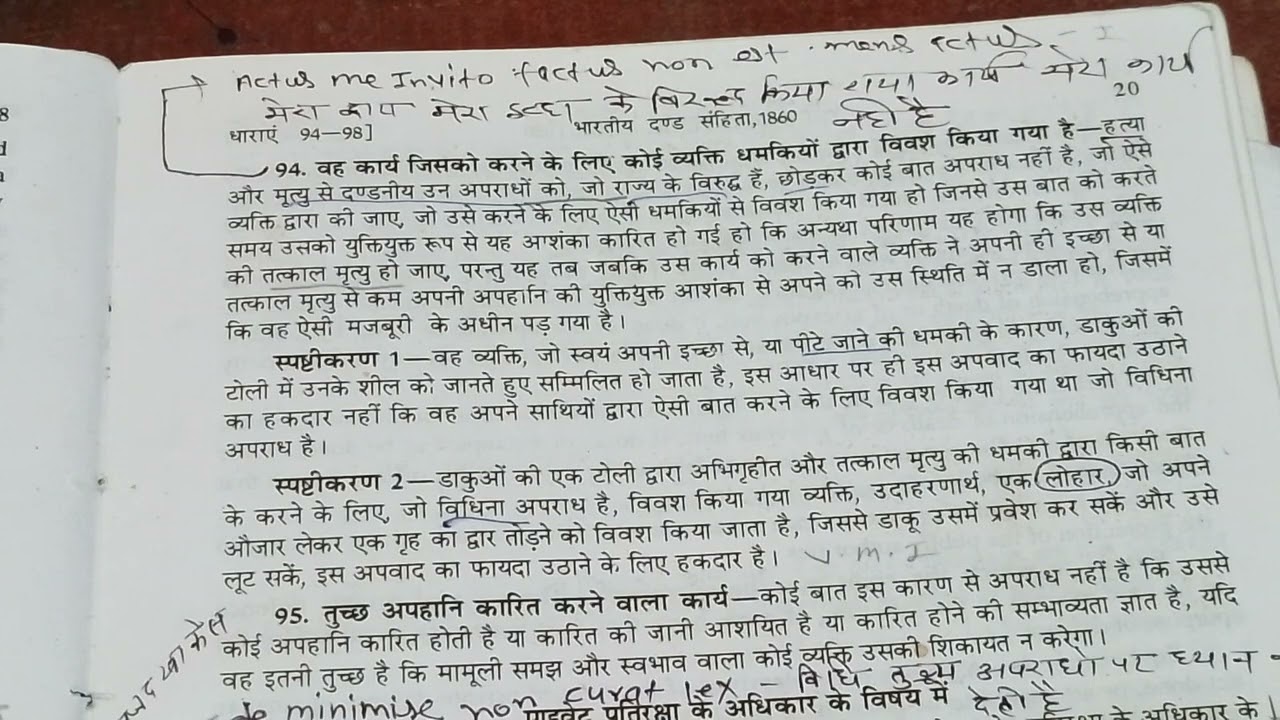 Actus me Invito factus non est mens actus - I
मेरा द्वारा मेरा इच्छा के विरूद्ध किया गया कार्य मेरा कार्य
नही है
20
धाराएं 94–98]
भारतीय दण्ड संहिता,1860
94. वह कार्य जिसको करने के लिए कोई व्यक्ति धमकियों द्वारा विवश किया गया है—हत्या
और मृत्यु से दण्डनीय उन अपराधों को, जो राज्य के विरुद्ध हैं, छोड़कर कोई बात अपराध नहीं है, जो ऐसे
व्यक्ति द्वारा की जाए, जो उसे करने के लिए ऐसी धमकियों से विवश किया गया हो जिनसे उस बात को करते
समय उसको युक्तियुक्त रूप से यह आशंका कारित हो गई हो कि अन्यथा परिणाम यह होगा कि उस व्यक्ति
की तत्काल मृत्यु हो जाए, परन्तु यह तब जबकि उस कार्य को करने वाले व्यक्ति ने अपनी ही इच्छा से या
तत्काल मृत्यु से कम अपनी अपहानि की युक्तियुक्त आशंका से अपने को उस स्थिति में न डाला हो, जिसमें
कि वह ऐसी मजबूरी के अधीन पड़ गया है।
स्पष्टीकरण 1—वह व्यक्ति, जो स्वयं अपनी इच्छा से, या पीटे जाने की धमकी के कारण, डाकुओं की
टोली में उनके शील को जानते हुए सम्मिलित हो जाता है, इस आधार पर ही इस अपवाद का फायदा उठाने
का हकदार नहीं कि वह अपने साथियों द्वारा ऐसी बात करने के लिए विवश किया गया था जो विधिना
अपराध है।
स्पष्टीकरण 2—डाकुओं की एक टोली द्वारा अभिगृहीत और तत्काल मृत्यु की धमकी द्वारा किसी बात
के करने के लिए, जो विधिना अपराध है, विवश किया गया व्यक्ति, उदाहरणार्थ, एक लोहार, जो अपने
औजार लेकर एक गृह का द्वार तोड़ने को विवश किया जाता है, जिससे डाकू उसमें प्रवेश कर सकें और उसे
लूट सकें, इस अपवाद का फायदा उठाने के लिए हकदार है। V.M.I
95. तुच्छ अपहानि कारित करने वाला कार्य—कोई बात इस कारण से अपराध नहीं है कि उससे
कोई अपहानि कारित होती है या कारित की जानी आशयित है या कारित होने की सम्भाव्यता ज्ञात है, यदि
वह इतनी तुच्छ है कि मामूली समझ और स्वभाव वाला कोई व्यक्ति उसकी शिकायत न करेगा।
de minimise non curat lex - विधि तुक्ष्म अपराधो पर ध्यान
देती है
प्राइवेट प्रतिरक्षा के अधिकार के विषय में